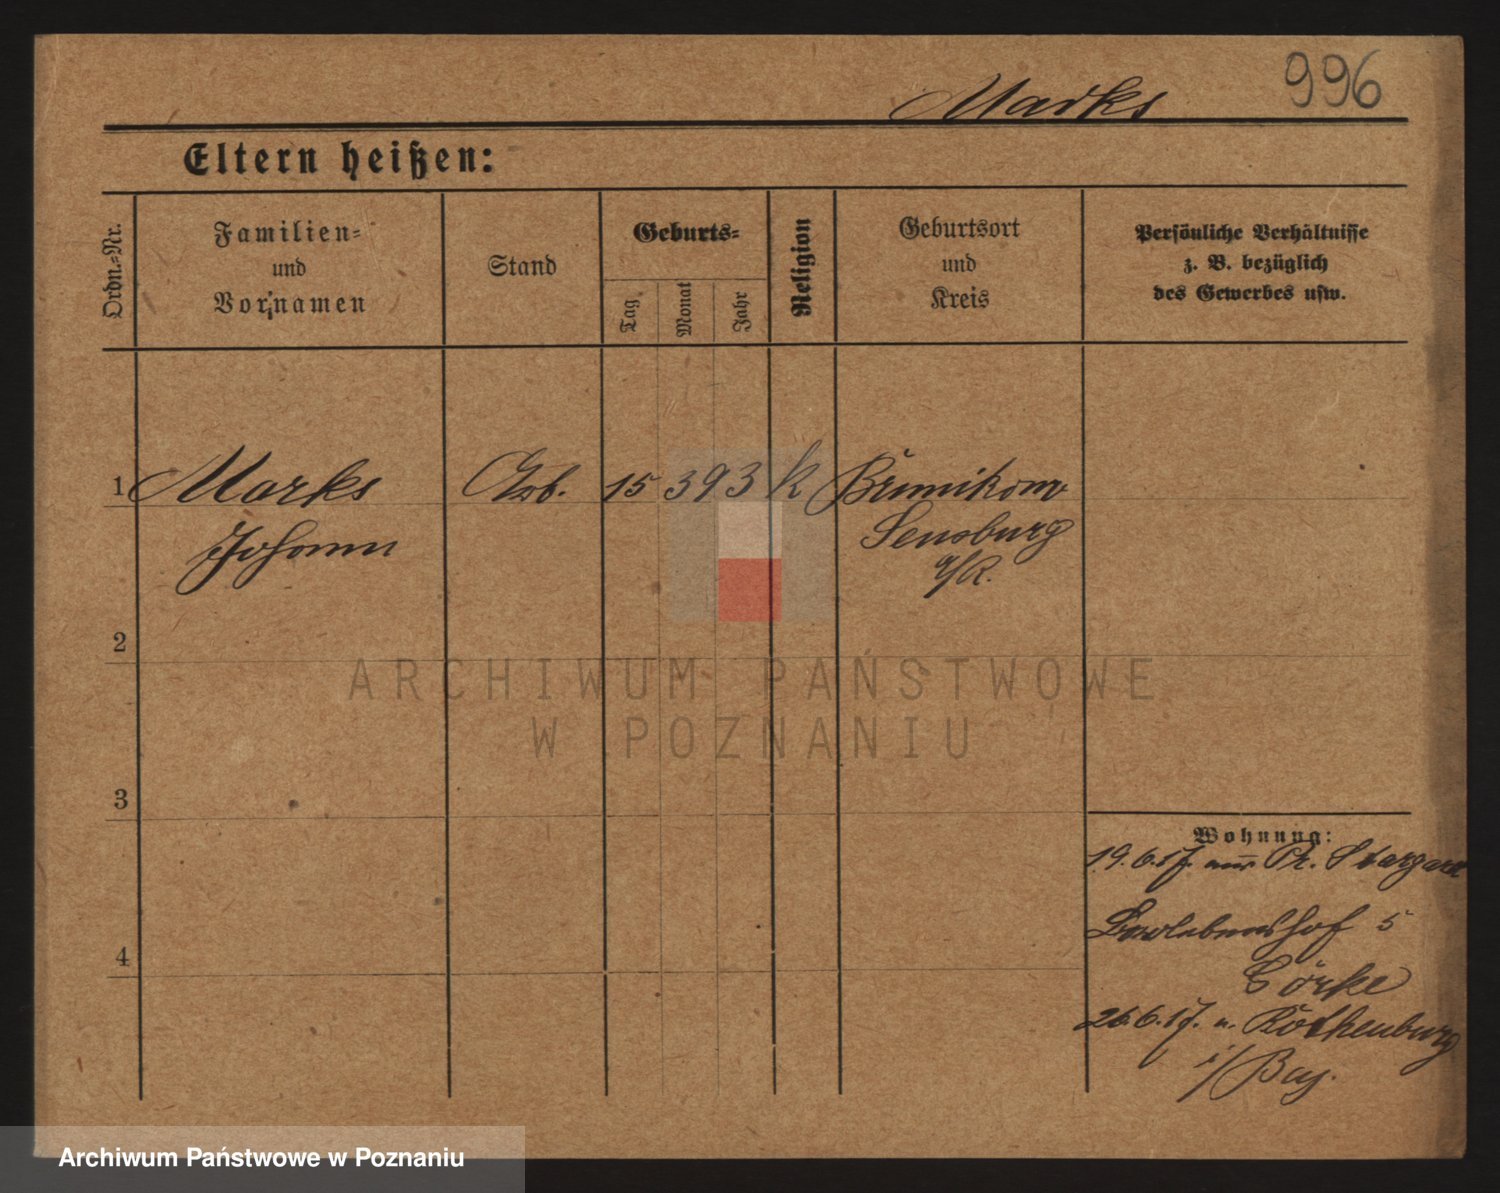 996
Marks
Eltern heißen:
Ordn.-Nr.
Familien-
und
Vornamen
Stand
Geburts-
Tag
Monat
Jahr
Religion
Geburtsort
und
Kreis
Persönliche Verhältnisse
z. B. bezüglich
des Gewerbes usw.
1 Marks 15 3 93 k
Johann
Sensburg
2
3
4
ARCHIWUM PAŃSTWOWE
W POZNANIU
Wohnung:
19.6.17. aus Pr. Stargard
5
26.6.17. n. Rothenburg
Archiwum Państwowe w Poznaniu